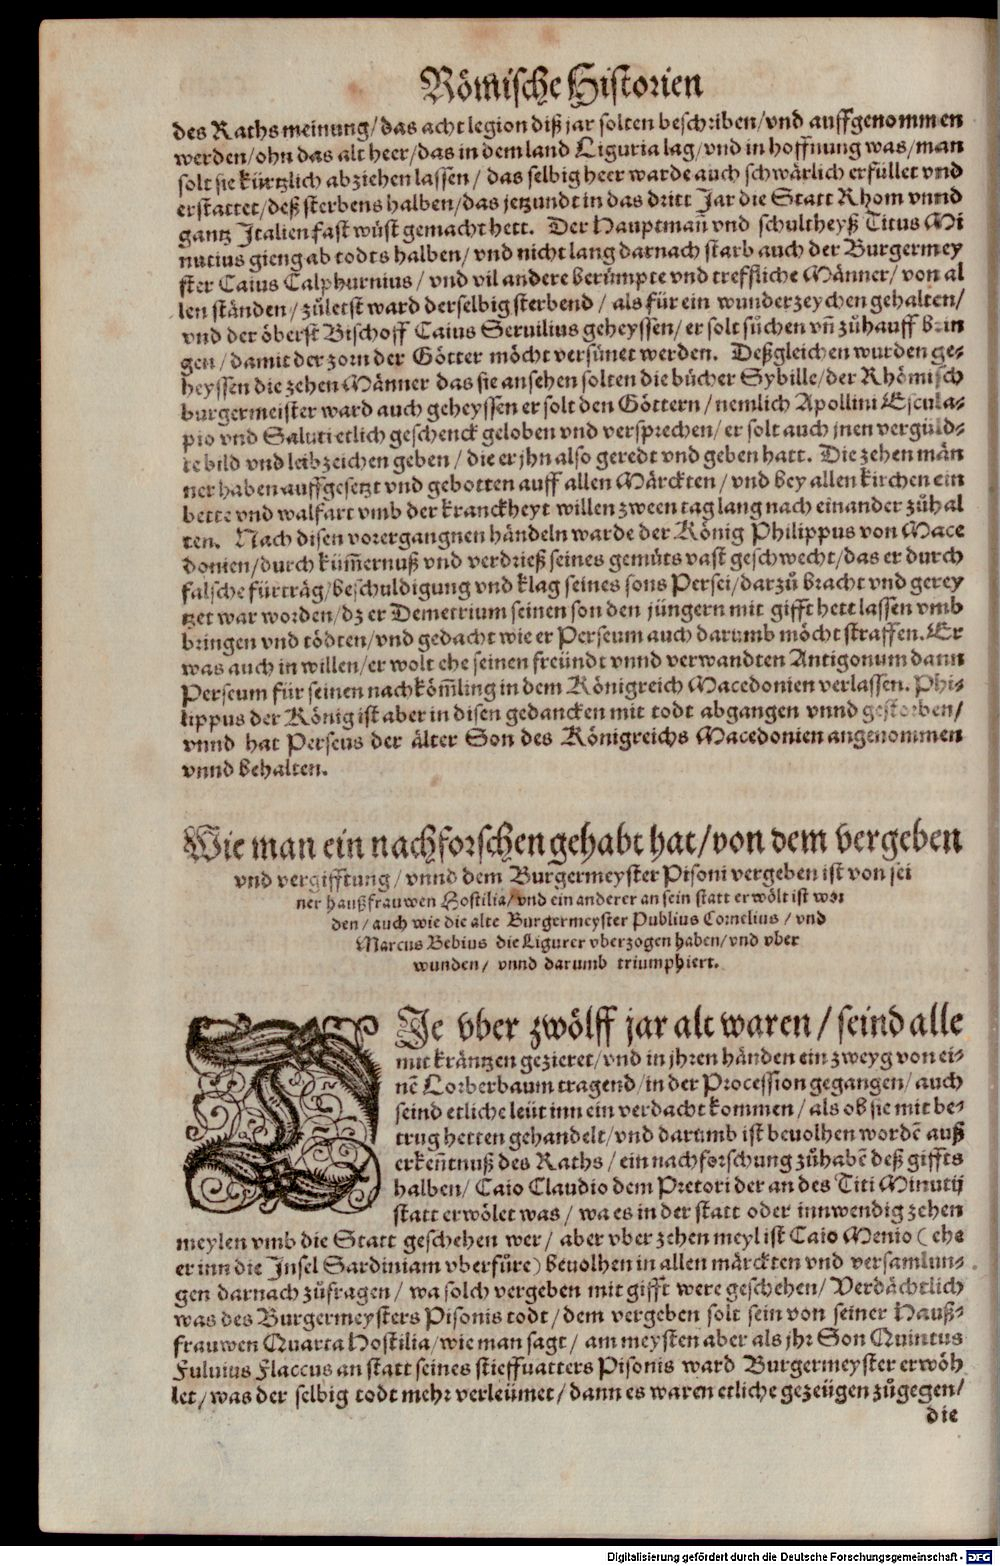 Römische Historien
des Raths meinung/das acht legion diß jar solten beschriben/vnd auffgenommen
werden/ohn das alt heer/das in dem land Liguria lag/vnd in hoffnung was/man
solt sie kürtzlich abziehen lassen/ das selbig heer warde auch schwärlich erfüllet vnd
erstattet/deß sterbens halben/das jetzundt in das dritt Jar die Statt Rhom vnnd
gantz Italien fast wüst gemacht hett. Der Hauptmañ vnd schultheyß Titus Mi
nutius gieng ab todts halben/ vnd nicht lang darnach starb auch der Burgermey
ster Caius Calphurnius/ vnd vil andere berümpte vnd treffliche Männer/ von al
len ständen/ zůletst ward derselbig sterbend/ als für ein wunderzeychen gehalten/
vnd der öberst Bischoff Caius Seruilius geheyssen/ er solt sůchen vñ zůhauff brin
gen/ damit der zorn der Götter möcht versünet werden. Deßgleichen wurden ge-
heyssen die zehen Männer das sie ansehen solten die bücher Sybille/der Rhömisch
burgermeister ward auch geheyssen er solt den Göttern/ nemlich Apollini Escula-
pio vnd Saluti etlich geschenck geloben vnd versprechen/ er solt auch jnen vergüld-
te bild vnd leibzeichen geben/ die er jhn also geredt vnd geben hatt. Die zehen män
ner haben auffgesetzt vnd gebotten auff allen Märckten/ vnd bey allen kirchen ein
bette vnd walfart vmb der kranckheyt willen zween tag lang nach einander zůhal
ten. Nach disen vorergangnen händeln warde der König Philippus von Mace
donien/durch küm̃ernuß vnd verdrieß seines gemüts vast geschwecht/das er durch
falsche fürträg/beschuldigung vnd klag seines sons Persei/darzů bracht vnd gerey
tzet war worden/dz er Demetrium seinen son den jüngern mit gifft hett lassen vmb
bringen vnd tödten/vnd gedacht wie er Perseum auch darumb möcht straffen. Er
was auch in willen/er wolt ehe seinen freündt vnnd verwandten Antigonum dann
Perseum für seinen nachköm̃ling in dem Königreich Macedonien verlassen. Phi-
lippus der König ist aber in disen gedancken mit todt abgangen vnnd gestorben/
vnnd hat Perseus der älter Son des Königreichs Macedonien angenommen
vnnd behalten.
Wie man ein nachforschen gehabt hat/von dem vergeben
vnd vergifftung/ vnnd dem Burgermeyster Pisoni vergeben ist von sei
ner haußfrauwen Hostilia/vnd ein anderer an sein statt erwölt ist wor
den/auch wie die alte Burgermeyster Publius Cornelius/vnd
Marcus Bebius die Ligurer vberzogen haben/vnd vber
wunden/ vnnd darumb triumphiert.
DIe vber zwölff jar alt waren/seind alle
mit kräntzen gezieret/vnd in jhren händen ein zweyg von ei-
nẽ Lorberbaum tragend/in der Procession gegangen/ auch
seind etliche leüt inn ein verdacht kommen/ als ob sie mit be-
trug hetten gehandelt/vnd darumb ist beuolhen wordẽ auß
erkeñtnuß des Raths/ ein nachforschung zůhabẽ deß giffts
halben/ Caio Claudio dem Pretori der an des Titi Minutij
statt erwölet was/ wa es in der statt oder innwendig zehen
meylen vmb die Statt geschehen wer/ aber vber zehen meyl ist Caio Menio (ehe
er inn die Insel Sardiniam vberfüre) beuolhen in allen märckten vnd versamlun-
gen darnach zůfragen/ wa solch vergeben mit gifft were geschehen/ Verdächtlich
was des Burgermeysters Pisonis todt/ dem vergeben solt sein von seiner Hauß-
frauwen Quarta Hostilia/wie man sagt/ am meysten aber als jhr Son Quintus
Fuluius Flaccus an statt seines stieffuatters Pisonis ward Burgermeyster erwöh
let/ was der selbig todt mehr verleümet/dann es waren etliche gezeügen zůgegen/
die
Digitalisierung gefördert durch die Deutsche Forschungsgemeinschaft - DFG